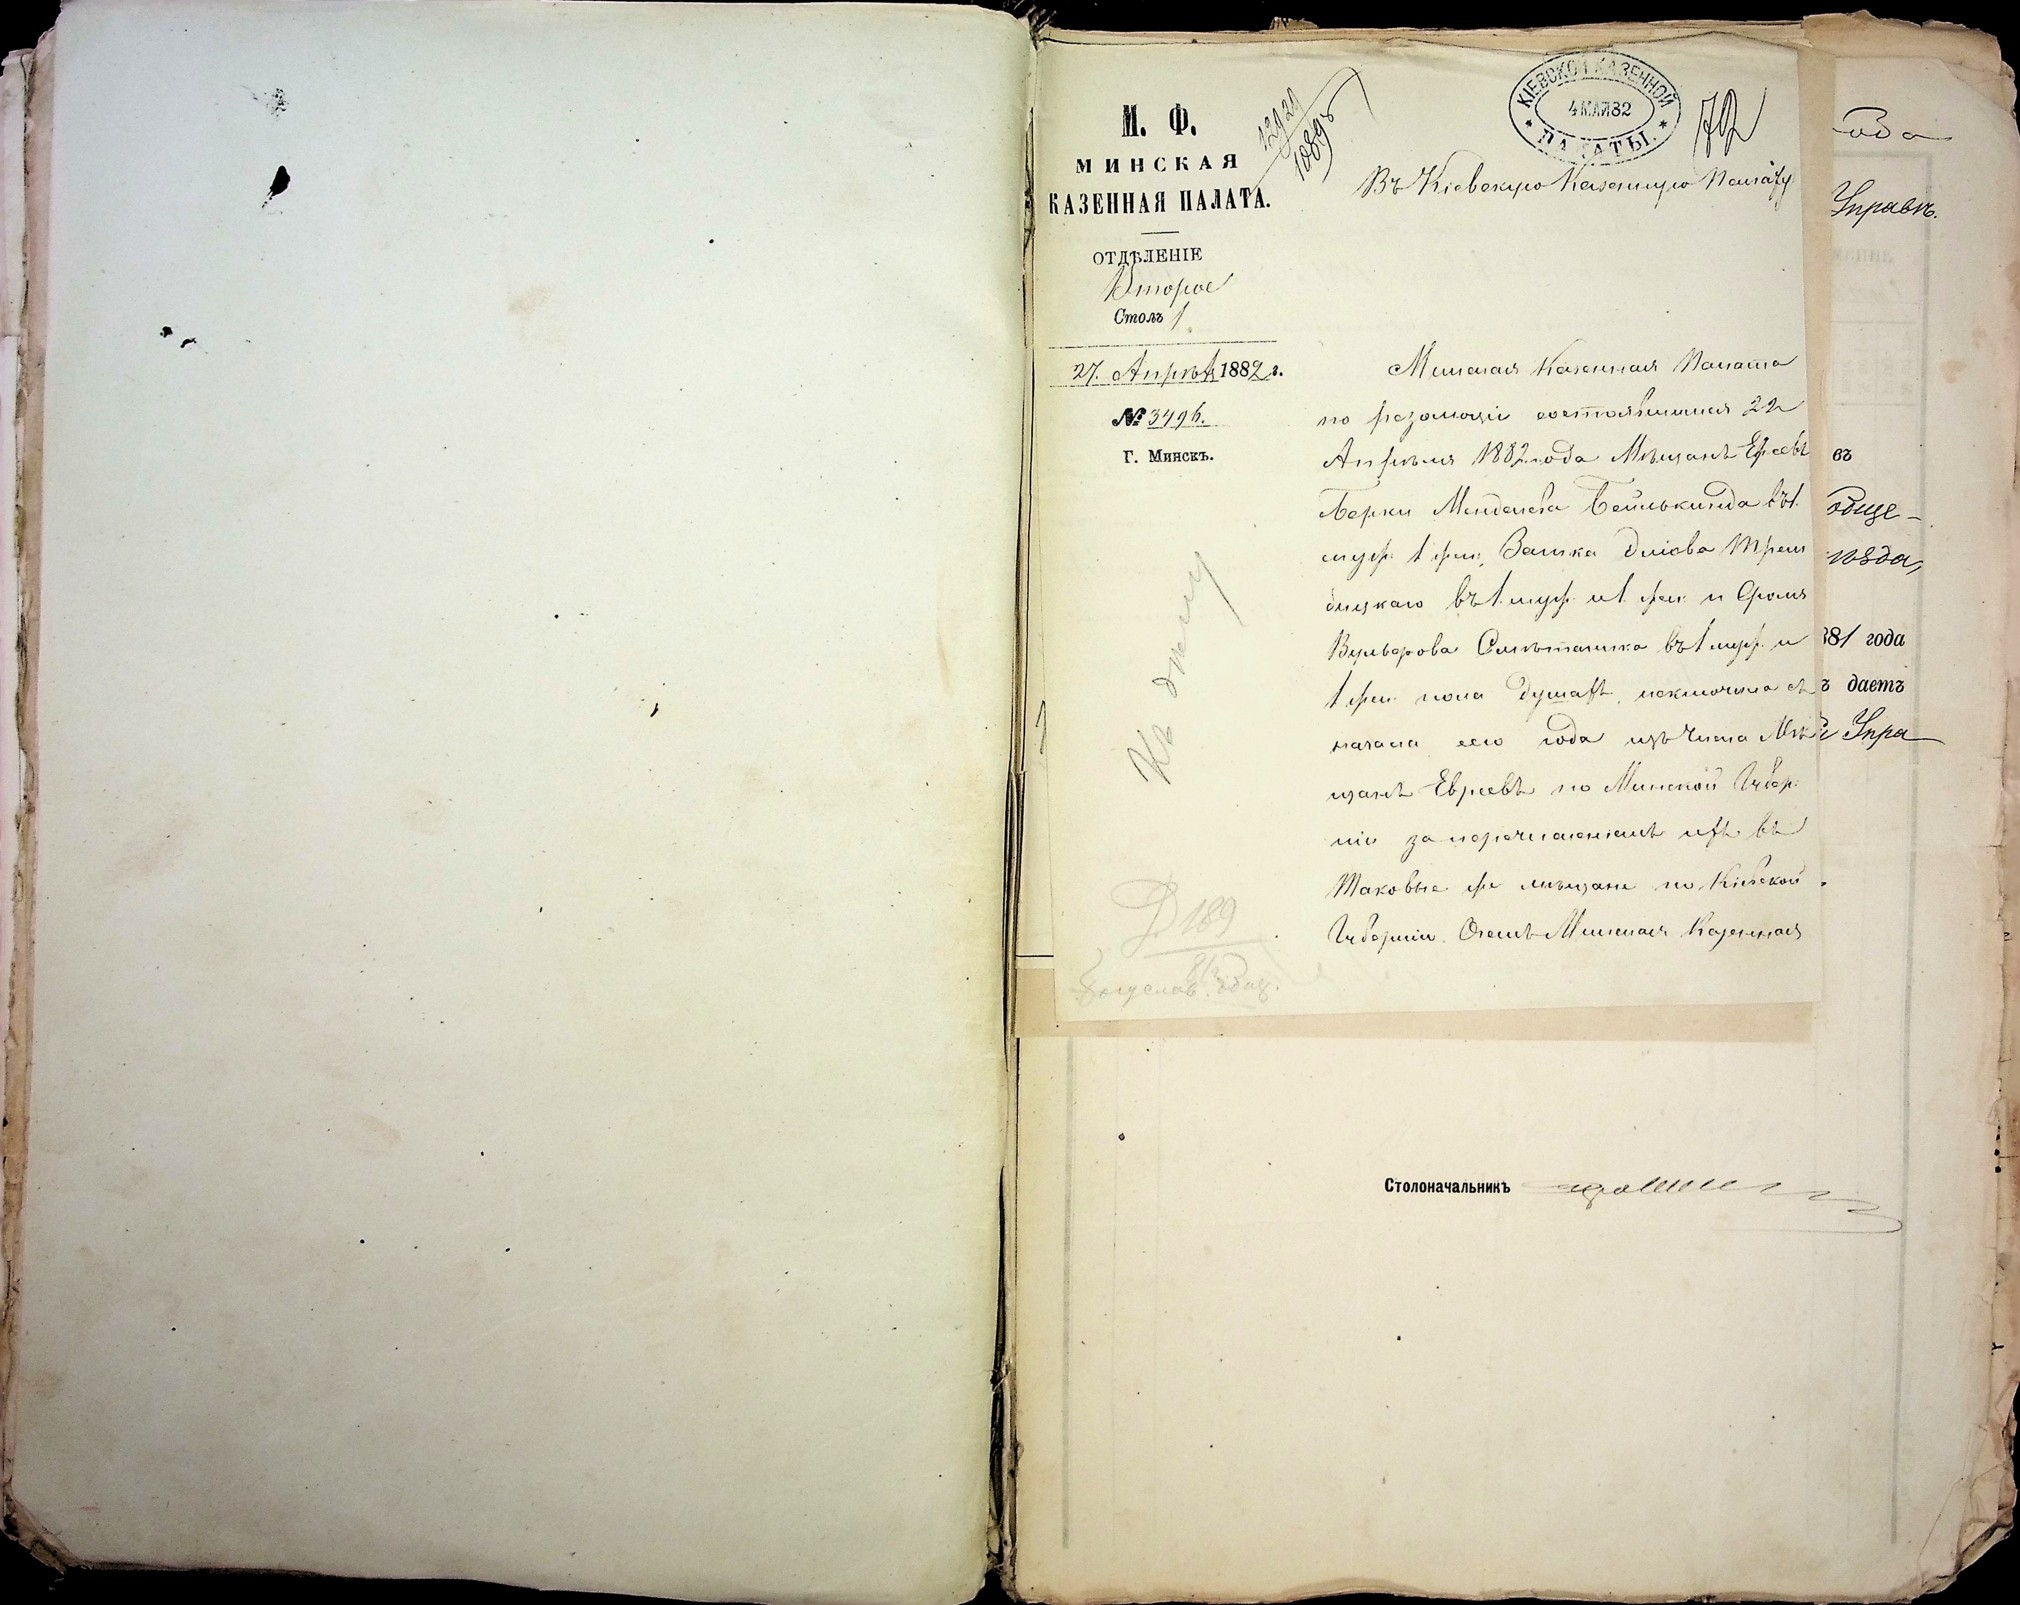 М. Ф.
МИНСКАЯ
КАЗЕННАЯ ПАЛАТА.
ОТДѢЛЕНІЕ
Второе
Столъ 1
27. Апрѣля 1882 г.
№ 3496.
Г. Минскъ.
12929
10895
КІЕВСКОЙ КАЗЕННОЙ
4 МАЙ 82
ПАЛАТЫ.
72
Въ Кіевскую Казенную Палату
Минская Казенная Палата
по резолюціи состоявшейся 22
Апрѣля 1882 года Мѣщанъ Евреевъ
Берки Менделева Бейлькинда въ 1.
муж. 1 жен.
въ 1. муж. и 1. жен. и
въ 1 муж. и
1 жен. пола душахъ, исключила съ
начала сего года изъ числа Мѣ
щанъ Евреевъ по Минской Губер
ніи за перечисленіемъ ихъ въ
таковые же мѣщане по Кіевской
Губерніи. О чемъ Минская Казенная
Къ дѣлу
Д. 189
81
Богуслав. общ.
ода
Управѣ.
въ
обще-
ѣзда,
881 года
ъ даетъ
Упра
Столоначальникъ